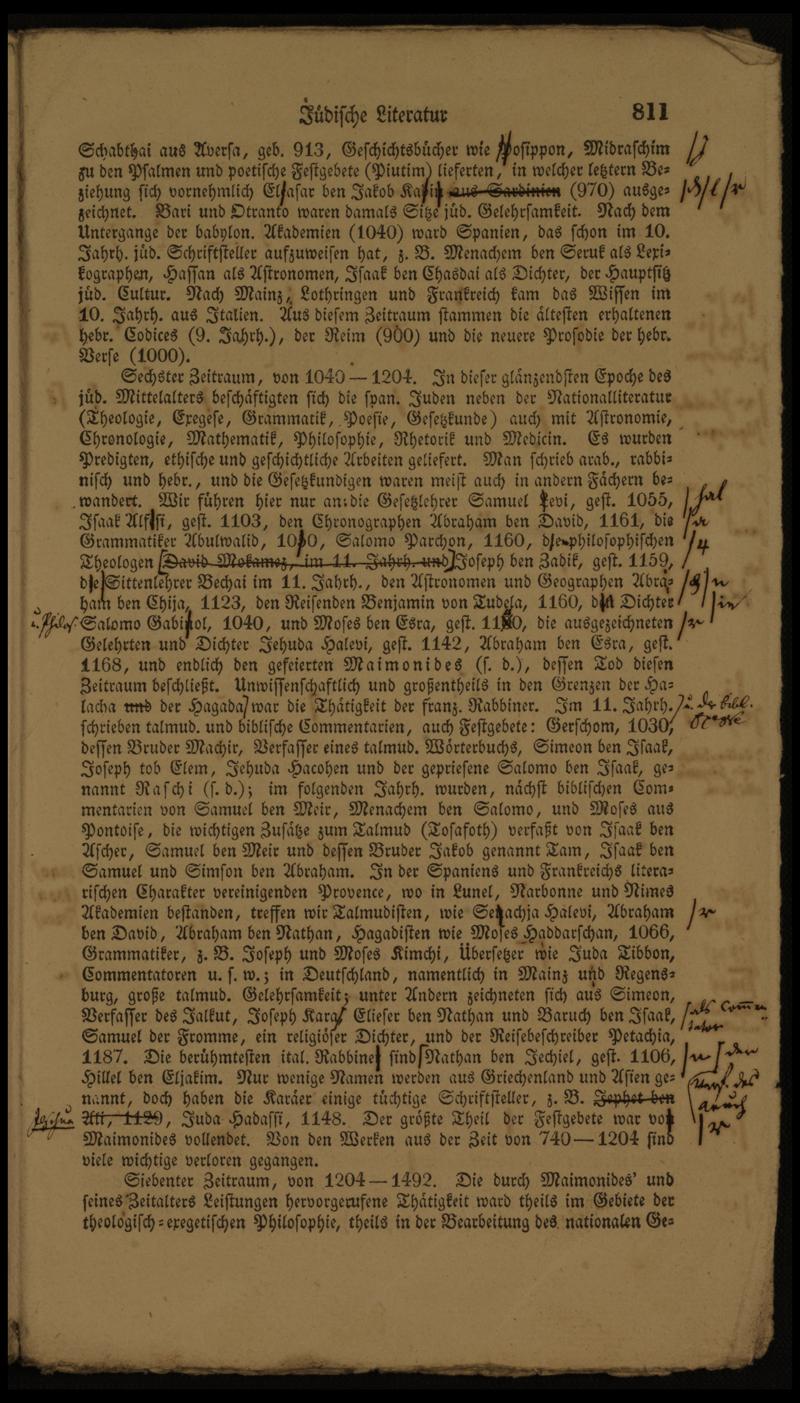 Jüdische Literatur 811
Schabthai aus Aversa, geb. 913, Geschichtsbücher wie Josippon, Midraschim
zu den Psalmen und poetische Festgebete (Piutim) lieferten, in welcher letztern Be-
ziehung sich vornehmlich Eljasar ben Jakob aus Sardinien (970) ausge-
zeichnet. Bari und Otranto waren damals Sitze jüd. Gelehrsamkeit. Nach dem
Untergange der babylon. Akademien (1040) ward Spanien, das schon im 10.
Jahrh. jüd. Schriftsteller aufzuweisen hat, z. B. Menachem ben Seruk als Lexi-
kographen, Hassan als Astronomen, Isaak ben Chasdai als Dichter, der Hauptsitz
jüd. Cultur. Nach Mainz, Lothringen und Frankreich kam das Wissen im
10. Jahrh. aus Italien. Aus diesem Zeitraum stammen die ältesten erhaltenen
hebr. Codices (9. Jahrh.), der Reim (900) und die neuere Prosodie der hebr.
Verse (1000).
Sechster Zeitraum, von 1040—1204. In dieser glänzendsten Epoche des
jüd. Mittelalters beschäftigten sich die span. Juden neben der Nationalliteratur
(Theologie, Exegese, Grammatik, Poesie, Gesetzkunde) auch mit Astronomie,
Chronologie, Mathematik, Philosophie, Rhetorik und Medicin. Es wurden
Predigten, ethische und geschichtliche Arbeiten geliefert. Man schrieb arab., rabbi-
nisch und hebr., und die Gesetzkundigen waren meist auch in andern Fächern be-
wandert. Wir führen hier nur an: die Gesetzlehrer Samuel Levi, gest. 1055, hal
Isaak Alfasi, gest. 1103, den Chronographen Abraham ben David, 1161, die
Grammatiker Abulwalid, Salomo Parchon, 1160, die philosophischen 4
Theologen David Mokamez, im 11. Jahrh. und Joseph ben Zadik, gest. 1159,
die Sittenlehrer Bechai im 11. Jahrh., den Astronomen und Geographen Abra-
ham ben Chija, 1123, den Reisenden Benjamin von Tudela, 1160, Dichter
u. Philos. Salomo Gabirol, 1040, und Moses ben Esra, gest. die ausgezeichneten
Gelehrten und Dichter Jehuda Halevi, gest. 1142, Abraham ben Esra, gest.
1168, und endlich den gefeierten Maimonides (s. d.), dessen Tod diesen
Zeitraum beschließt. Unwissenschaftlich und großentheils in den Grenzen der Ha-
lacha und der Hagada war die Thätigkeit der franz. Rabbiner. Im 11. Jahrh. bibl.
schrieben talmud. und biblische Commentarien, auch Festgebete: Gerschom, 1030,
dessen Bruder Machir, Verfasser eines talmud. Wörterbuchs, Simeon ben Isaak,
Joseph tob Elem, Jehuda Hacohen und der gepriesene Salomo ben Isaak, ge-
nannt Raschi (s. d.); im folgenden Jahrh. wurden, nächst biblischen Com-
mentarien von Samuel ben Meir, Menachem ben Salomo, und Moses aus
Pontoise, die wichtigen Zusätze zum Talmud (Tosafoth) verfaßt von Isaak ben
Ascher, Samuel ben Meir und dessen Bruder Jakob genannt Tam, Isaak ben
Samuel und Simson ben Abraham. In der Spaniens und Frankreichs litera-
rischen Charakter vereinigenden Provence, wo in Lunel, Narbonne und Nimes
Akademien bestanden, treffen wir Talmudisten, wie Serachja Halevi, Abraham
ben David, Abraham ben Nathan, Hagadisten wie Moses Haddarschan, 1066,
Grammatiker, z. B. Joseph und Moses Kimchi, Übersetzer wie Juda Tibbon,
Commentatoren u. s. w.; in Deutschland, namentlich in Mainz und Regens-
burg, große talmud. Gelehrsamkeit; unter Andern zeichneten sich aus Simeon,
Verfasser des Jalkut, Joseph Kara, Elieser ben Nathan und Baruch ben Isaak, als
Samuel der Fromme, ein religiöser Dichter, und der Reisebeschreiber Petachia,
1187. Die berühmtesten ital. Rabbinen sind Nathan ben Jechiel, gest. 1106, den
Hillel ben Eljakim. Nur wenige Namen werden aus Griechenland und Asien ge- Verf. des
nannt, doch haben die Karäer einige tüchtige Schriftsteller, z. B. Jephet ben Aruch
Ali, 1129, Juda Hadassi, 1148. Der größte Theil der Festgebete war vor
Maimonides vollendet. Von den Werken aus der Zeit von 740—1204 sind
viele wichtige verloren gegangen.
Siebenter Zeitraum, von 1204—1492. Die durch Maimonides' und
seines Zeitalters Leistungen hervorgerufene Thätigkeit ward theils im Gebiete der
theologisch-exegetischen Philosophie, theils in der Bearbeitung des nationalen Ge-